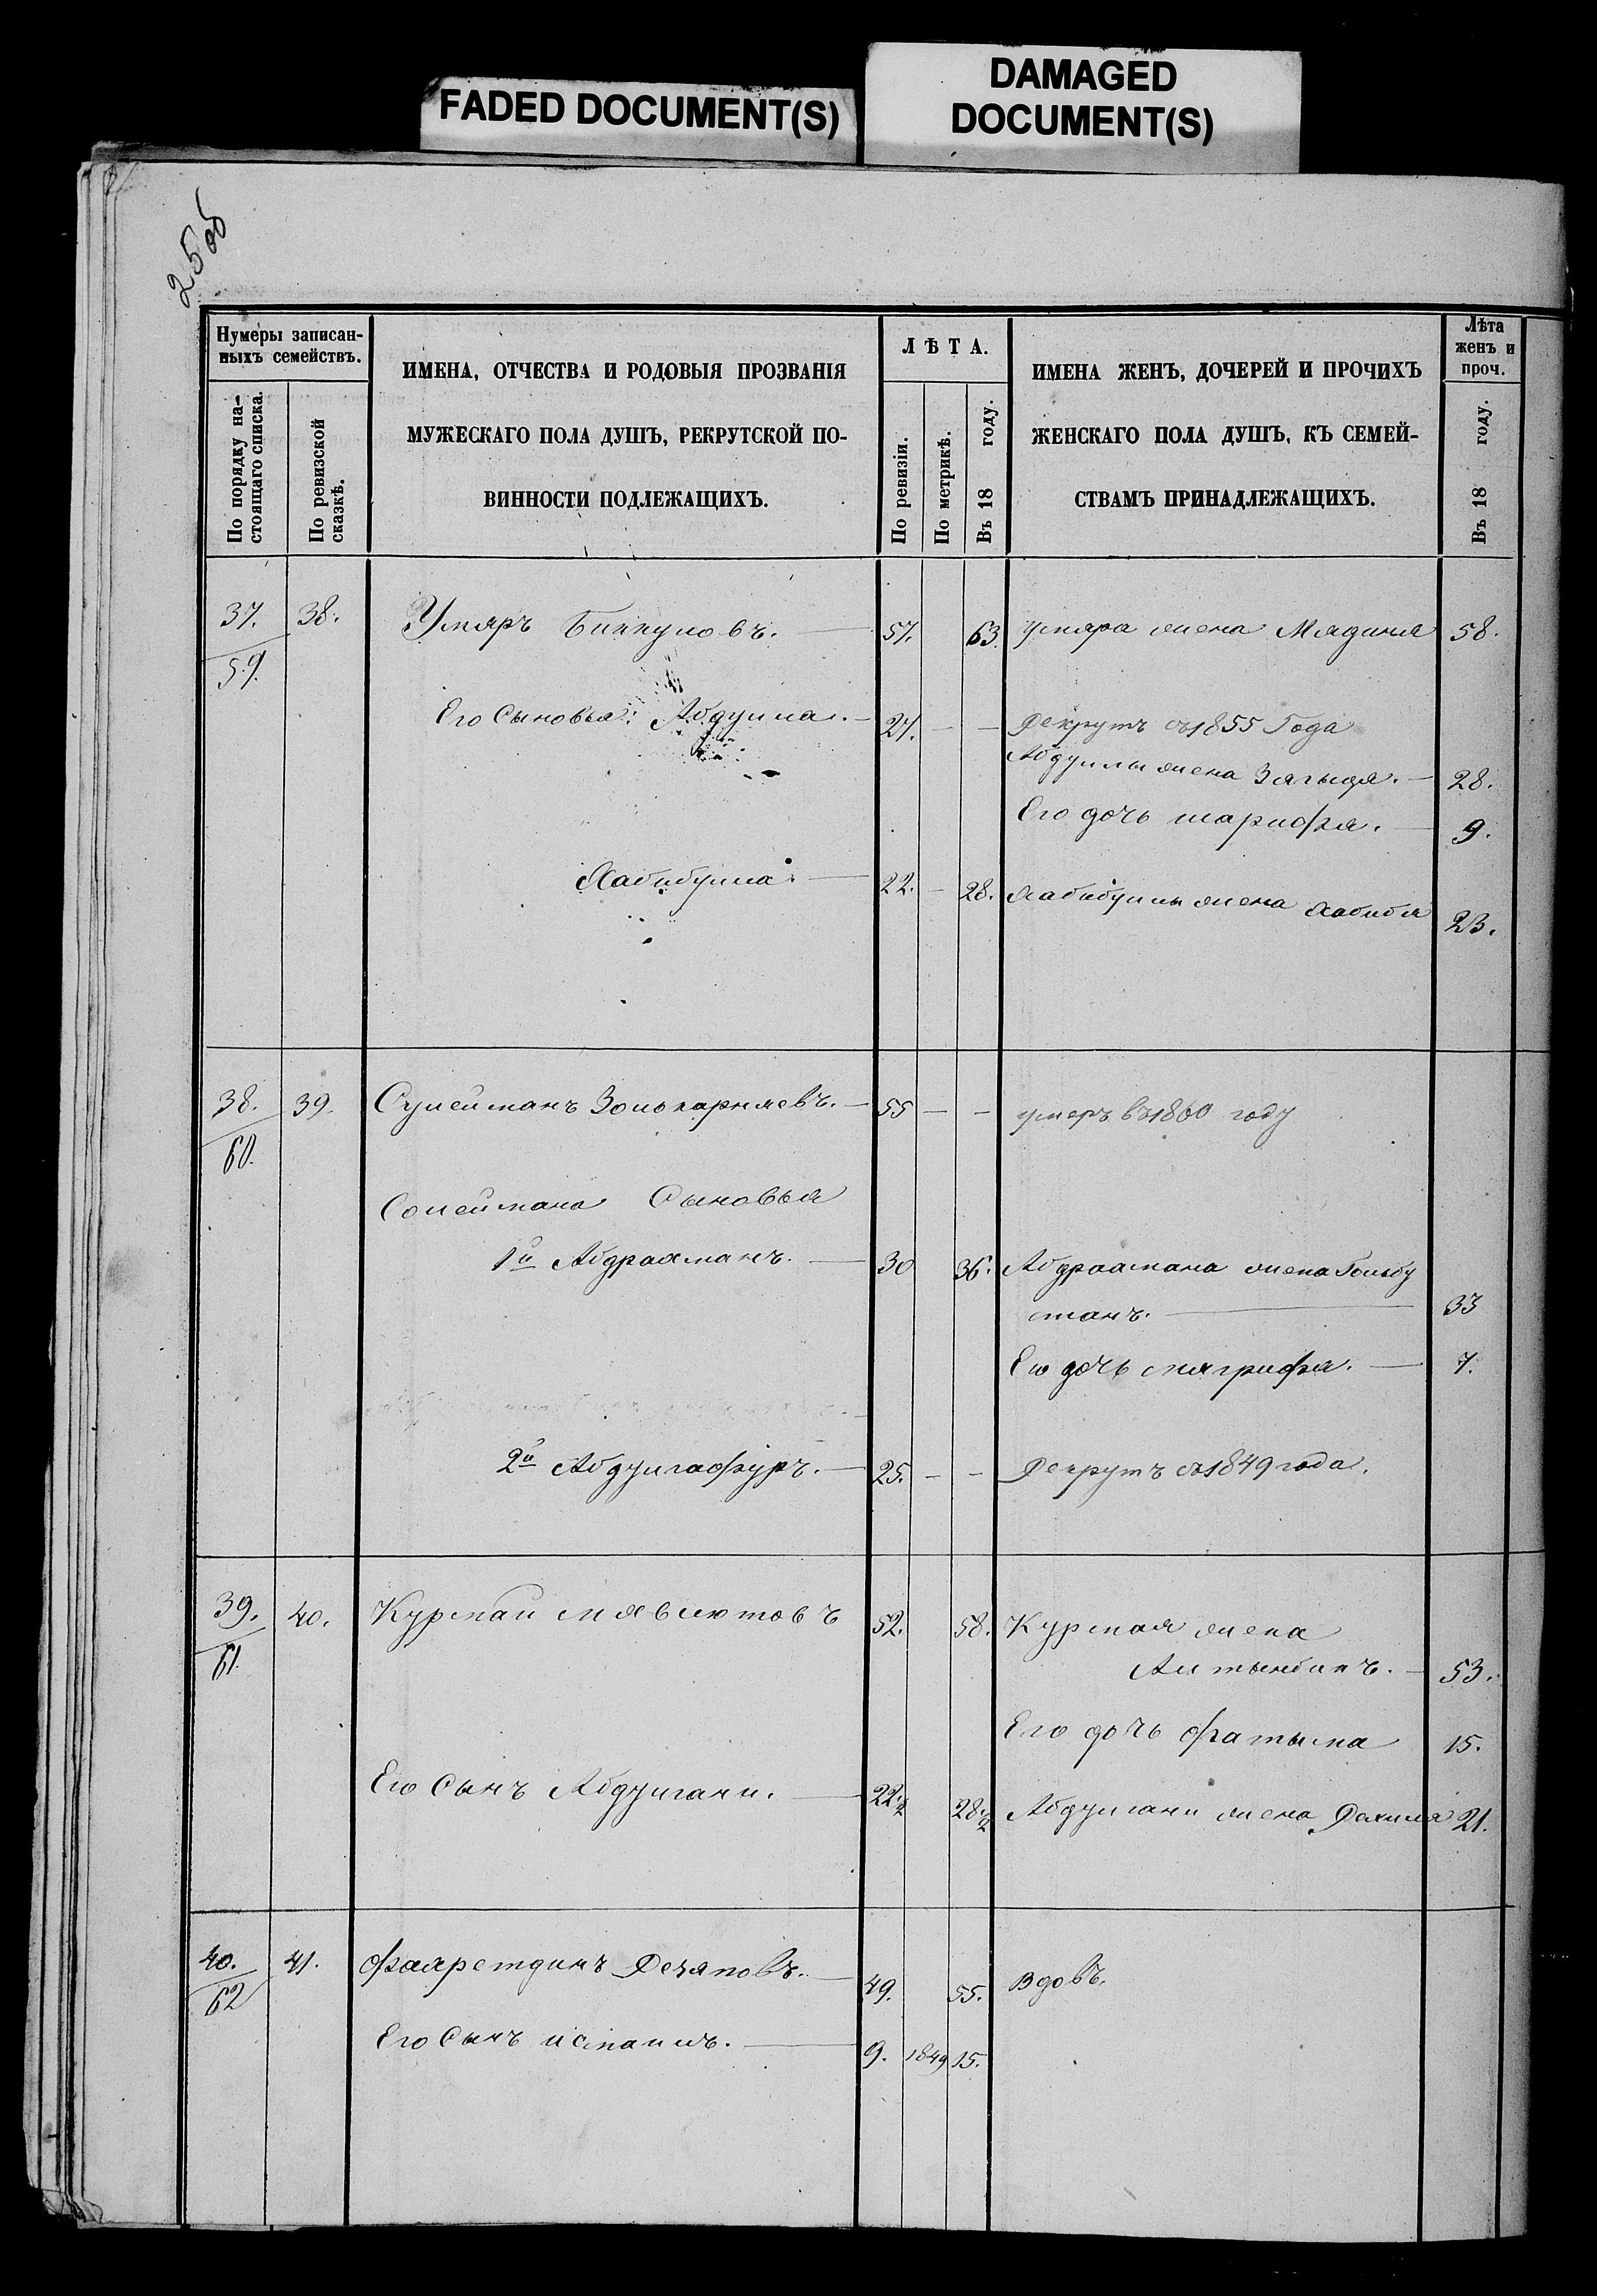 FADED DOCUMENT(S)
DAMAGED
DOCUMENT(S)
25об
Нумеры записан-
ныхъ семействъ.
По порядку на-
стоящаго списка.
По ревизской
сказкѣ.
ИМЕНА, ОТЧЕСТВА И РОДОВЫЯ ПРОЗВАНІЯ
МУЖЕСКАГО ПОЛА ДУШЪ, РЕКРУТСКОЙ ПО-
ВИННОСТИ ПОДЛЕЖАЩИХЪ.
ЛѢТА.
По ревизіи.
По метрикѣ.
Въ 18 году.
ИМЕНА ЖЕНЪ, ДОЧЕРЕЙ И ПРОЧИХЪ
ЖЕНСКАГО ПОЛА ДУШЪ, КЪ СЕМЕЙ-
СТВАМЪ ПРИНАДЛЕЖАЩИХЪ.
Лѣта
женъ и
проч.
Въ 18 году.
37. 38. Умяръ Биккуловъ. — 57. 63. Умяра жена Мядиня 58.
59.
Его Сыновья: Абдулла. — 27. — — Рекрутъ съ 1855 Года
Абдуллы жена Загыдя. — 28.
Его дочь шарифя. — 9.
Хабибулла. — 22. — 28. Хабибуллы жена Хабибя 23.
38. 39. Сулейманъ Золькарняевъ. — 55 — — умеръ въ 1860 году
60.
Солеймана Сыновья
1й Абдрахманъ. — 30 36. Абдрахмана жена Гользбу
станъ. — 33
Его дочь мягрифя. — 7.
2й Абдулгафуръ. — 25. — — Рекрутъ съ 1849 года.
39. 40. Курмай мявлютовъ 52. 58. Курмая жена
61.
Алтынбикъ. — 53.
Его дочь фатыма 15.
Его Сынъ Абдулгани. — 22.½ 28.½ Абдулгани жена Рахиля 21.
40. 41. Фахретдинъ Резяповъ. — 49. 55. Вдовъ.
62
Его Сынъ исмаилъ. — 9. 1849 15.